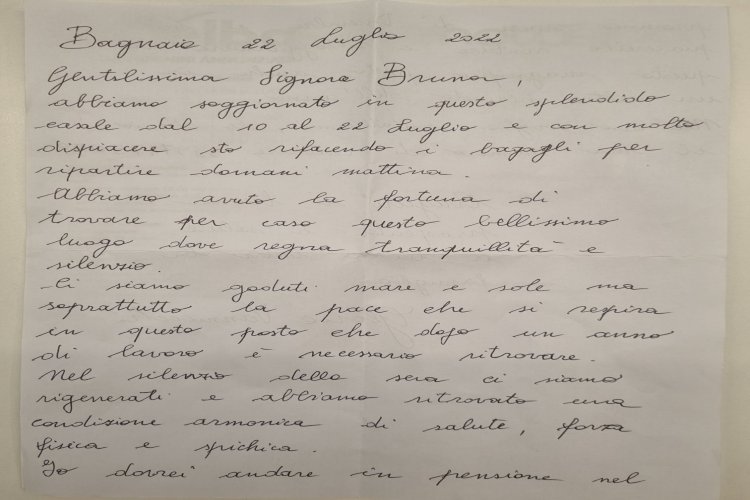 Bagnaio 22 Luglio 2022
Gentilissima Signora Bruna,
abbiamo soggiornato in questo splendido
casale dal 10 al 22 Luglio e con molto
dispiacere sto rifacendo i bagagli per
ripartire domani mattina.
Abbiamo avuto la fortuna di
trovare per caso questo bellissimo
luogo dove regna tranquillità e
silenzio.
Ci siamo goduti mare e sole ma
soprattutto la pace che si respira
in questo posto che dopo un anno
di lavoro è necessario ritrovare.
Nel silenzio della sera ci siamo
rigenerati e abbiamo ritrovato una
condizione armonica di salute, forza
fisica e spichica.
Io dovrei andare in pensione nel